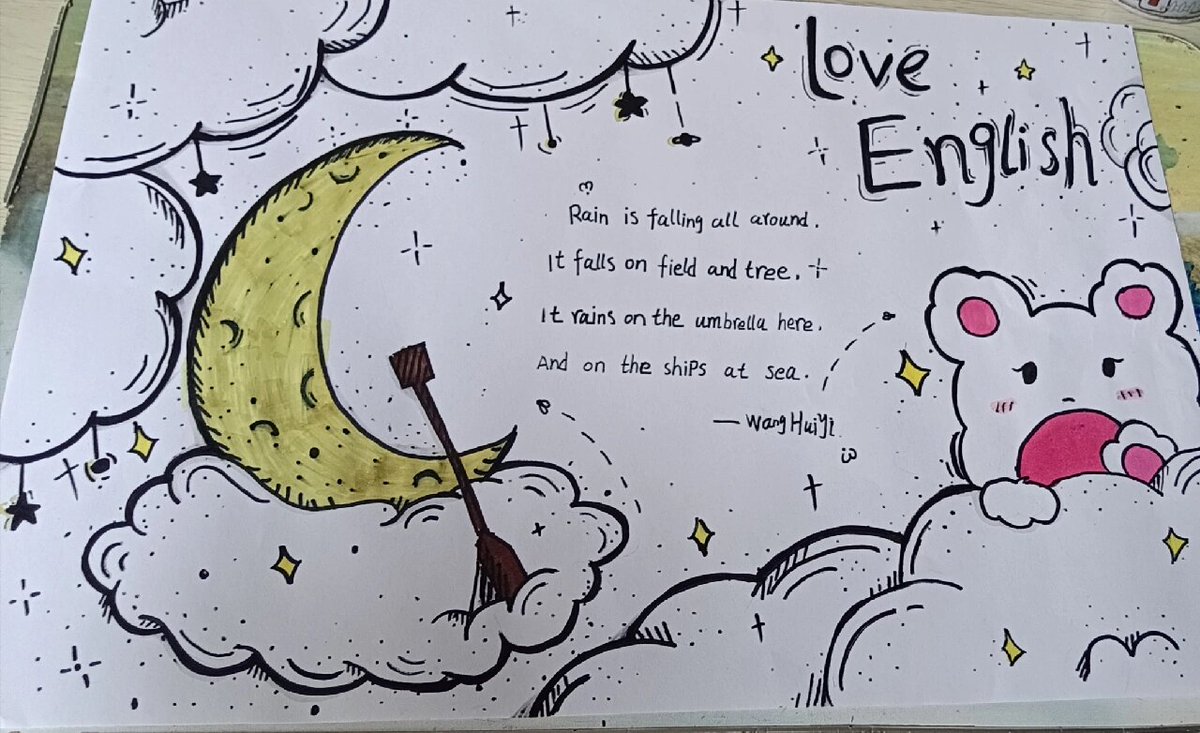 Love
English
Rain is falling all around.
It falls on field and tree.
It rains on the umbrella here.
And on the ships at sea.
— Wang HuiYi